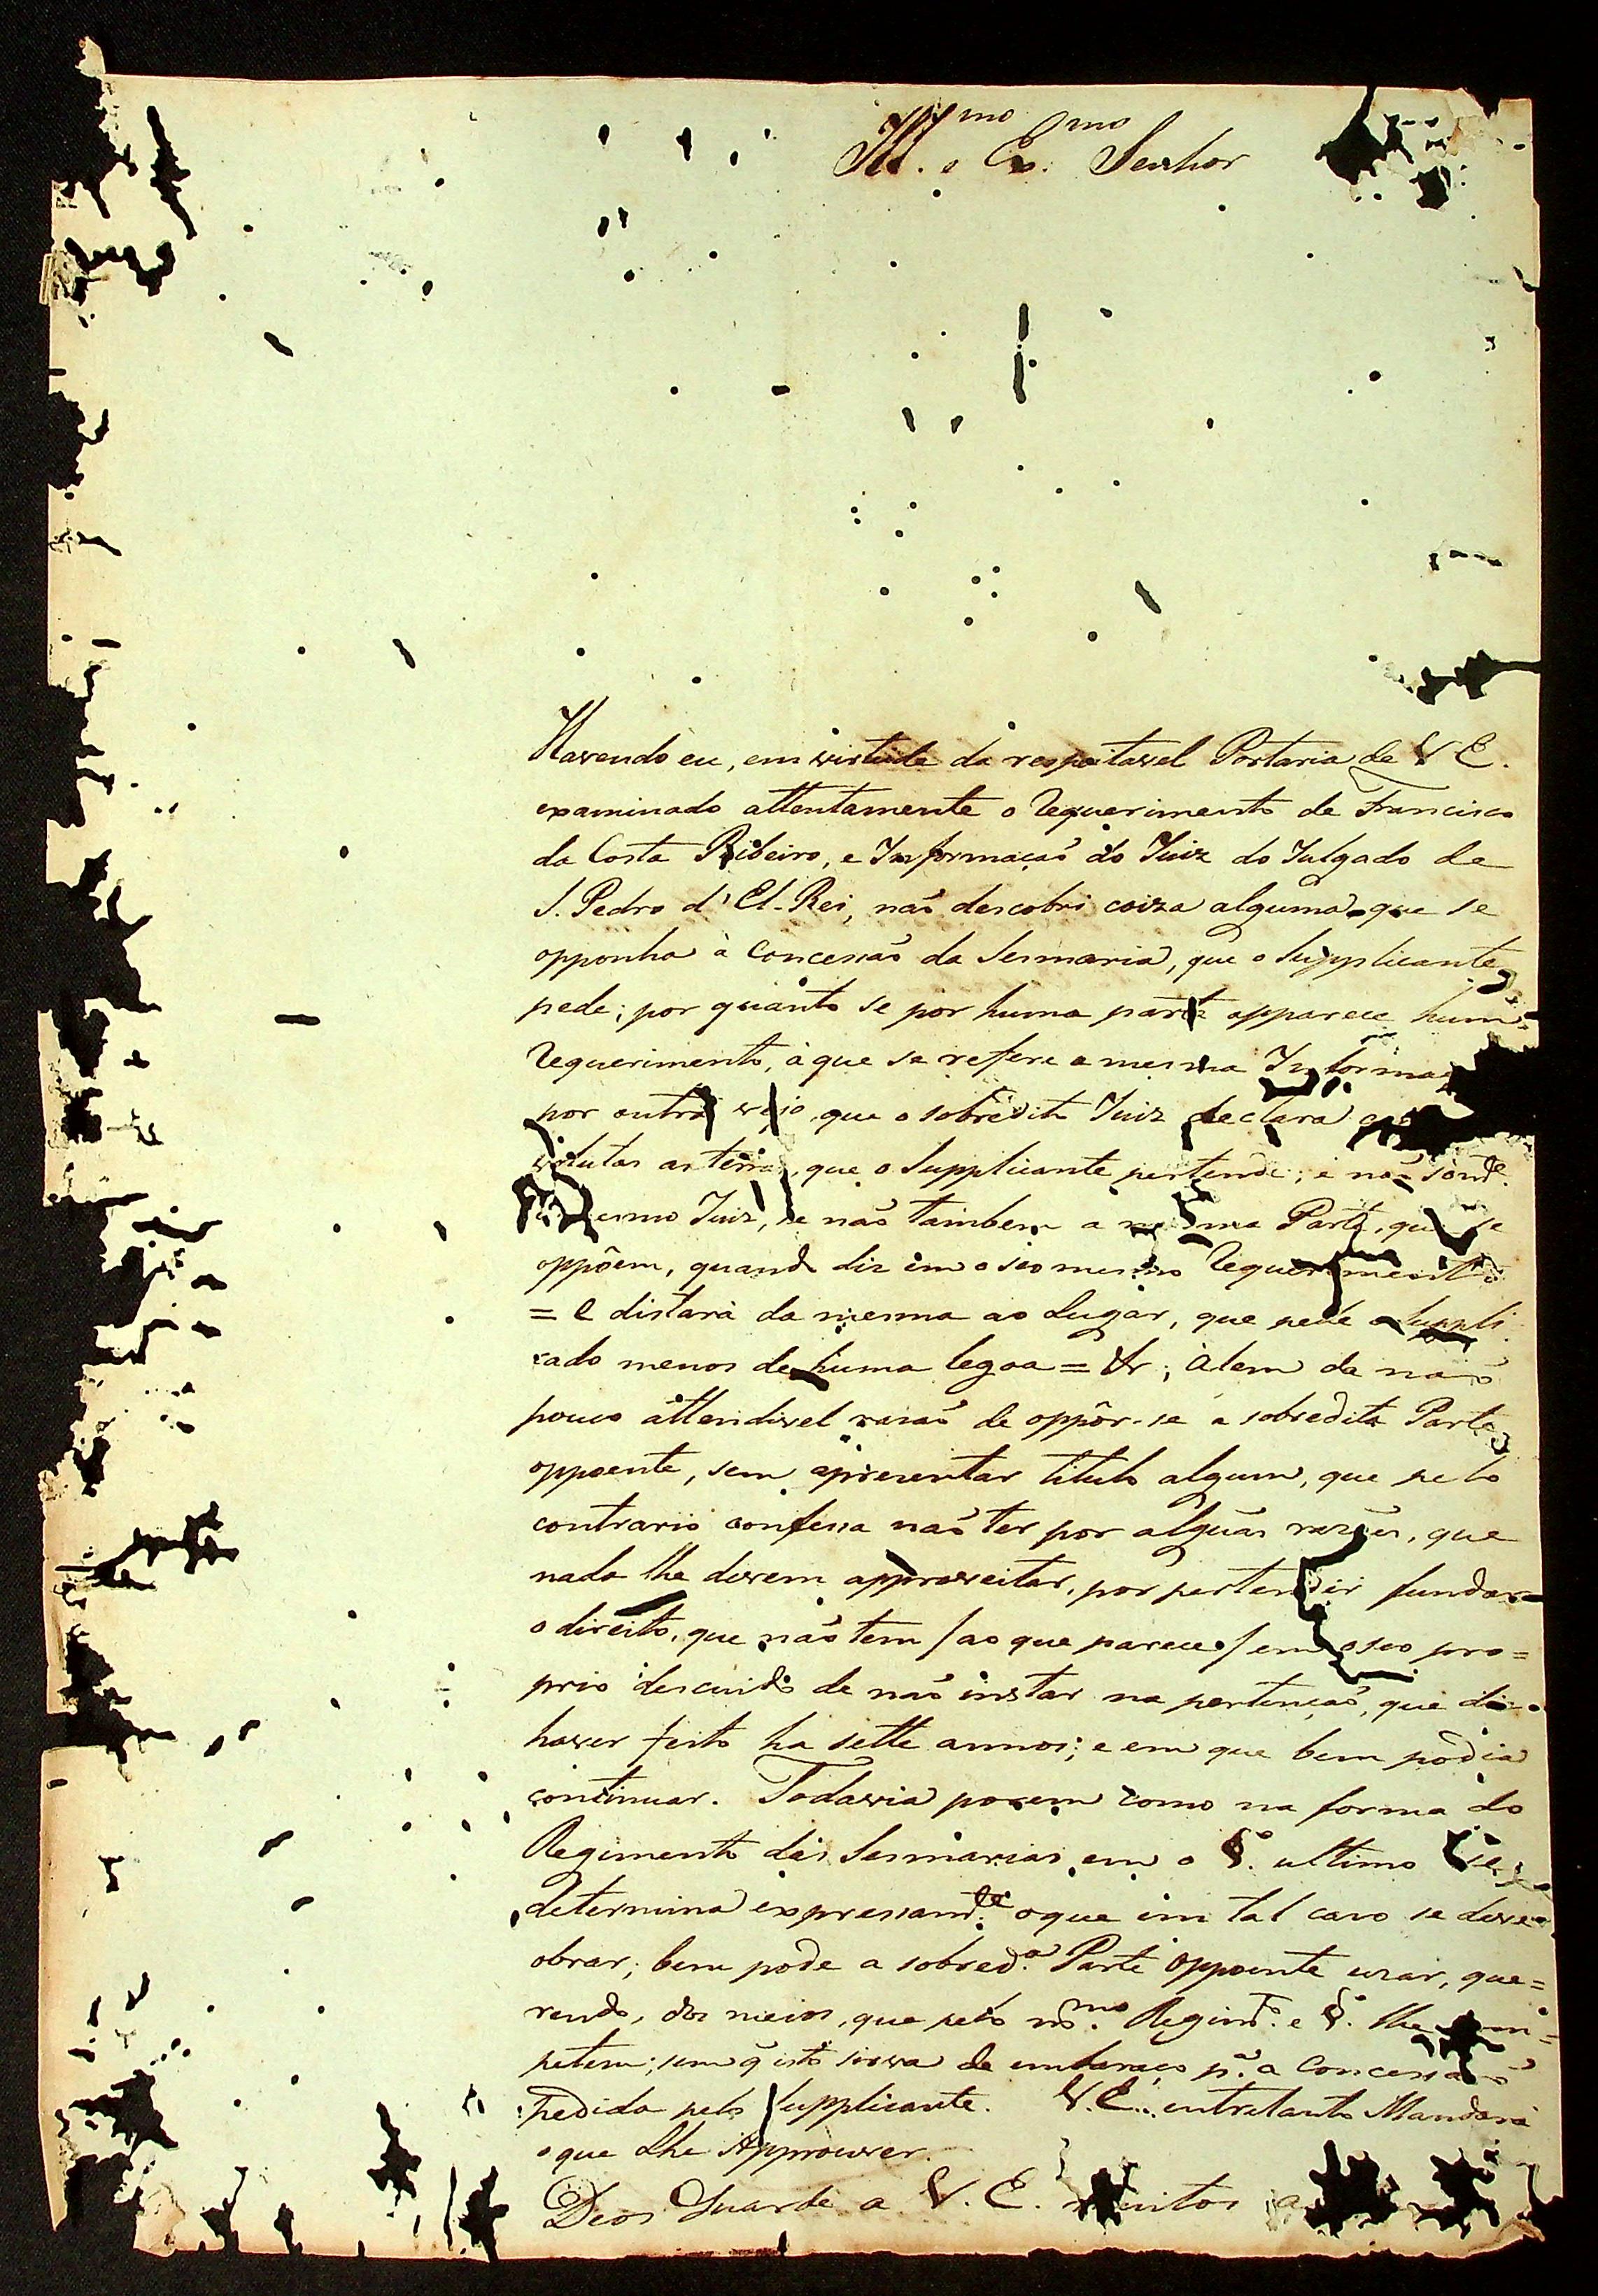 Ill.mo e Ex.mo Senhor
Havendo eu, em virtude da respeitavel Portaria de V E.
examinado attentamente o Requerimento de Francisco
da Costa Ribeiro, e Informação do Juiz do Julgado de
S. Pedro d'El-Rei, não descobri coiza alguma que se
opponha à Concessão da Sesmaria, que o Supplicante
pede; por quanto se por huma parte apparece hum
Requerimento, à que se refere a mesma Informa
por outra vejo, que o sobredito Juiz declara
volutas as terras, que o Supplicante pertende; e não som.e
mesmo Juiz, se não tambem a mesma Parte, que se
oppôem, quando diz em o seo mesmo Requerimento
= e distarà da mesma ao Lugar, que pede o Suppli
cado menos de huma legoa = &r; àlem da não
pouco attendivel rasão de oppôr-se a sobredita Parte
oppoente, sem apresentar titulo algum, que pelo
contrario confessa não ter por alguãs rasões, que
nada lhe devem approveitar, por pertender fundar
o direito, que não tem / ao que parece / em o seo pro=
prio descuido de não instar na pertenção, que diz
haver feito ha sette annos; e em que bem podia
continuar. Todavia porem como na forma do
Regimento das Sesmarias em o §. ultimo se
determina expressam.te o que em tal caso se deve
obrar; bem pode a sobred.a Parte oppoente uzar, que=
rendo, dos meios, que pelo m.mo Regim.to e §. lhe com=
petem; sem q̃ isto sirva de embaraço p.a a Concessão
pedida pelo Supplicante. V. E. entretanto Mandarà
o que Lhe Approuver.
Deos Guarde a V. E. muitos a